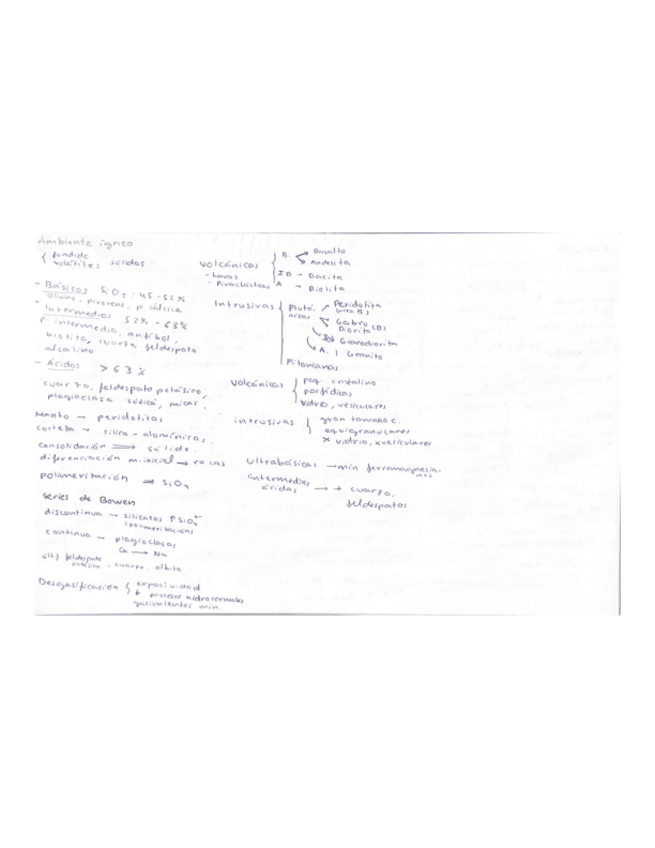 Ambiente ígneo
{ fundido
volátiles sólidos
- Básicos SiO2: 45-52%
Olivino, piroxeno, p cálcica
- Intermedios 52% - 63%
P. intermedia, anfíbol,
biotita, cuarzo, feldespato
alcalino
- Ácidos > 63%
cuarzo, feldespato potásico,
plagioclasa sódica, micas,
Manto → peridotitas
corteza → sílico-alumínicas.
consolidación ⇒ sólido.
diferenciación m.inicial → rocas
polimerización ⇒ SiO4
series de Bowen
discontinua → silicatos ↑SiO4 4-
(polimerización)
continua → plagioclasas
Ca → Na
últ} feldespato
potásico, cuarzo, albita
Desgasificación { exposividad
+ procesos hidrotermales
yacimientos min.
volcánicas { B. → Basalto
→ Andesita
- Lavas ID - Dacita
- Piroclásticas A - Riolita
Intrusivas { plutó- Peridotita
nicas
Gabro (B)
Diorita
Granodiorita
A. } Granito
Filonianas
volcánicas { peq. cristalino
porfídicas
vidrio, vesiculares
intrusivas } gran tamaño c.
equigranulares
x vidrio, x vesiculares
ultrabásicas → min ferromagnesia-
nos
intermedias,
ácidas → + cuarzo,
feldespatos